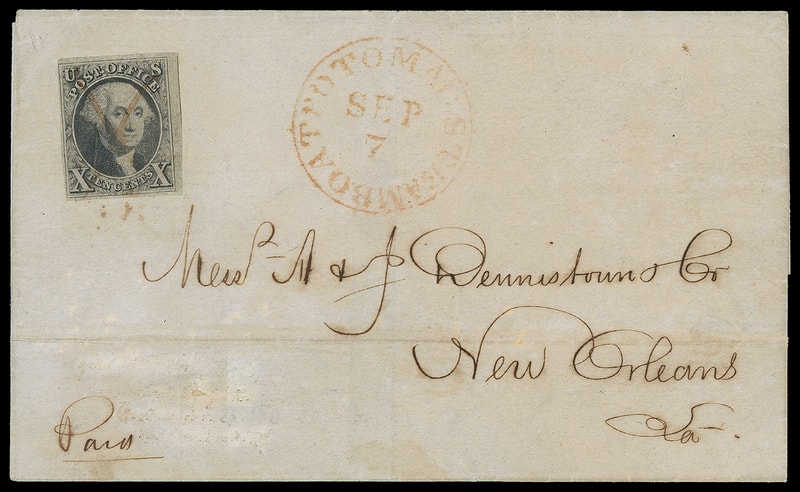 U S
POST OFFICE
X TEN CENTS X
POTOMAC STEAMBOAT
SEP
7
Messrs A & J Dennistoun & Co
New Orleans
La.
Paid